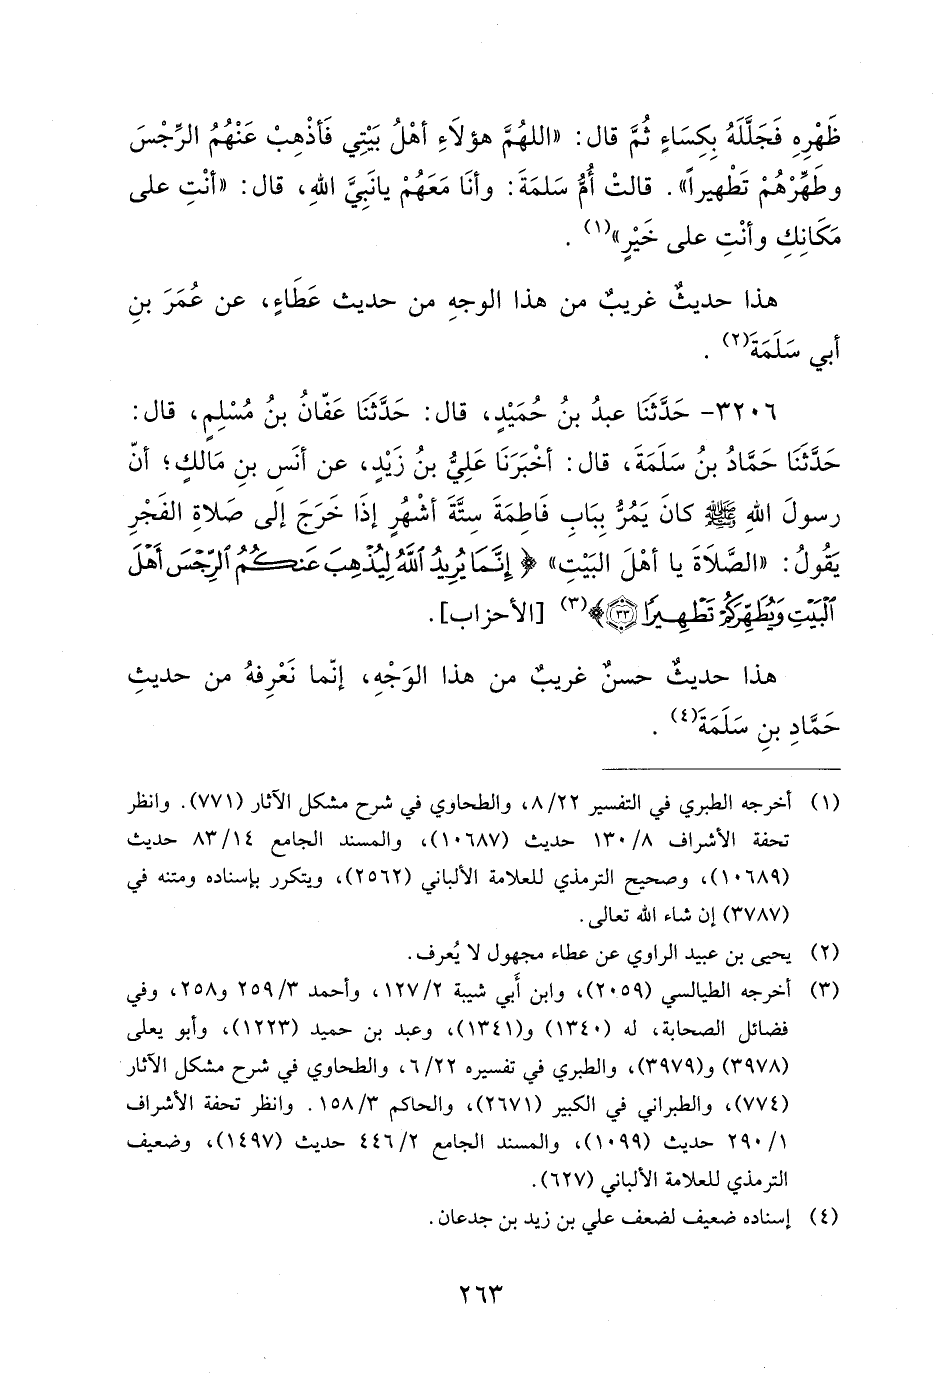 ظَهْرِهِ فَجَلَّلَهُ بِكِسَاءٍ ثُمَّ قال: «اللهُمَّ هؤلَاءِ أهْلُ بَيْتِي فَأذْهِبْ عَنْهُمُ الرِّجْسَ
وطَهِّرْهُمْ تَطْهيراً». قالتْ أُمُّ سَلمَةَ: وأنَا مَعَهُمْ يانَبِيَّ اللهِ، قال: «أنْتِ على
مَكَانِكِ وأنْتِ على خَيْرٍ»(١) .
هذا حديثٌ غريبٌ من هذا الوجهِ من حديث عَطَاءٍ، عن عُمَرَ بنِ
أبي سَلَمَةَ(٢) .
٣٢٠٦- حَدَّثَنَا عبدُ بنُ حُمَيْدٍ، قال: حَدَّثَنَا عَفّانُ بنُ مُسْلِمٍ، قال:
حَدَّثَنَا حَمَّادُ بنُ سَلَمَةَ، قال: أخْبَرَنَا عَلِيُّ بنُ زَيْدٍ، عن أنَسِ بنِ مَالكٍ؛ أنّ
رسولَ اللهِ ﷺ كانَ يَمُرُّ بِبَابِ فَاطِمَةَ سِتَّةَ أشْهُرٍ إذَا خَرَجَ إلى صَلاةِ الفَجْرِ
يَقُولُ: «الصَّلَاةَ يا أهْلَ البَيْتِ» ﴿إِنَّمَا يُرِيدُ ٱللَّهُ لِيُذْهِبَ عَنكُمُ ٱلرِّجْسَ أَهْلَ
ٱلْبَيْتِ وَيُطَهِّرَكُمْ تَطْهِيرًا ٣٣﴾(٣) [الأحزاب].
هذا حديثٌ حسنٌ غريبٌ من هذا الوَجْهِ، إنّما نَعْرِفهُ من حديثِ
حَمَّادِ بنِ سَلَمَةَ(٤) .
(١) أخرجه الطبري في التفسير ٨/٢٢، والطحاوي في شرح مشكل الآثار (٧٧١). وانظر
تحفة الأشراف ١٣٠/٨ حديث (١٠٦٨٧)، والمسند الجامع ٨٣/١٤ حديث
(١٠٦٨٩)، وصحيح الترمذي للعلامة الألباني (٢٥٦٢)، ويتكرر بإسناده ومتنه في
(٣٧٨٧) إن شاء الله تعالى.
(٢) يحيى بن عبيد الراوي عن عطاء مجهول لا يُعرف.
(٣) أخرجه الطيالسي (٢٠٥٩)، وابن أبي شيبة ١٢٧/٢، وأحمد ٢٥٩/٣ و٢٥٨، وفي
فضائل الصحابة، له (١٣٤٠) و(١٣٤١)، وعبد بن حميد (١٢٢٣)، وأبو يعلى
(٣٩٧٨) و(٣٩٧٩)، والطبري في تفسيره ٦/٢٢، والطحاوي في شرح مشكل الآثار
(٧٧٤)، والطبراني في الكبير (٢٦٧١)، والحاكم ١٥٨/٣. وانظر تحفة الأشراف
٢٩٠/١ حديث (١٠٩٩)، والمسند الجامع ٤٤٦/٢ حديث (١٤٩٧)، وضعيف
الترمذي للعلامة الألباني (٦٢٧).
(٤) إسناده ضعيف لضعف علي بن زيد بن جدعان.
٢٦٣